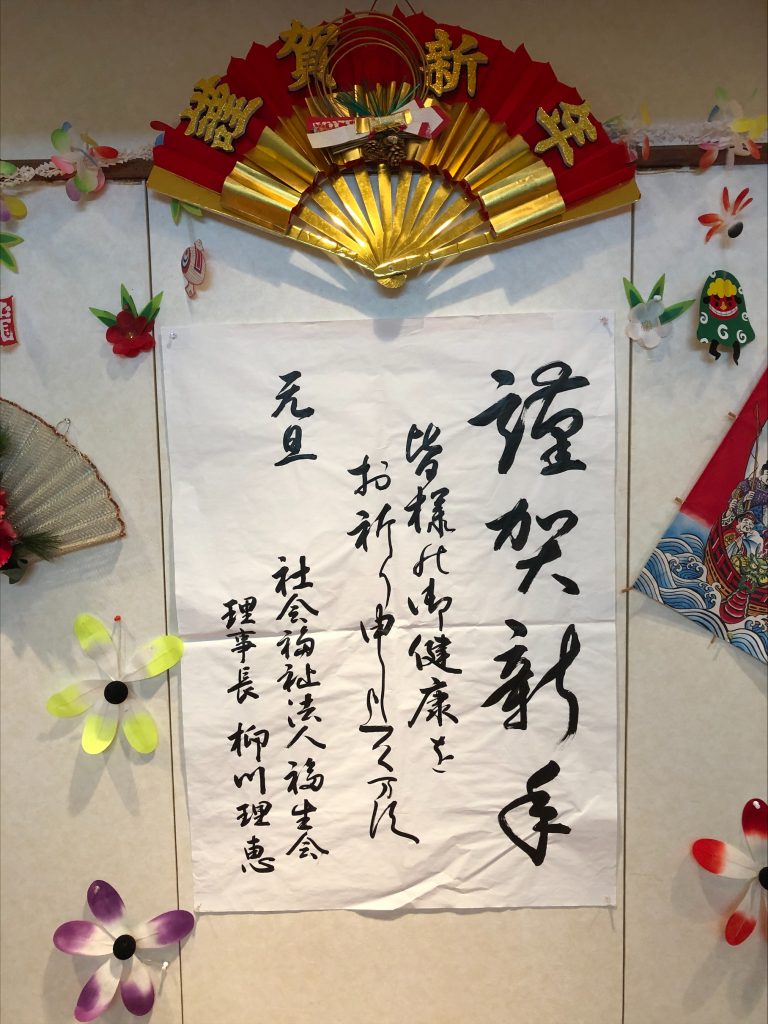 謹賀新年
謹賀新年
皆様の御健康を
お祈り申し上げます
元旦
社会福祉法人福生会
理事長 柳川理恵